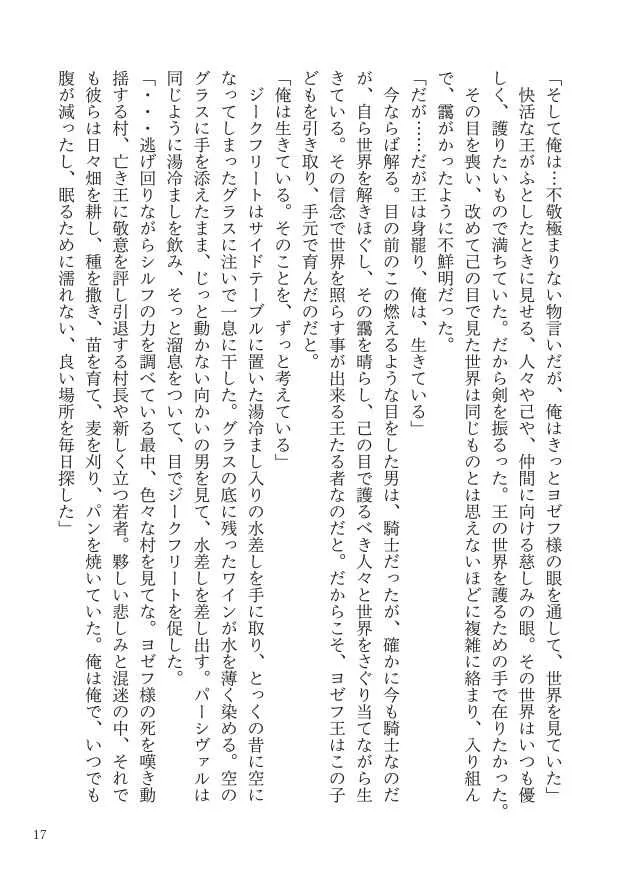 「そして俺は…不敬極まりない物言いだが、俺はきっとヨゼフ様の眼を通して、世界を見ていた」
　快活な王がふとしたときに見せる、人々や己や、仲間に向ける慈しみの眼。その世界はいつも優
しく、護りたいもので満ちていた。だから剣を振るった。王の世界を護るための手で在りたかった。
　その目を喪い、改めて己の目で見た世界は同じものとは思えないほどに複雑に絡まり、入り組ん
で、靄がかったように不鮮明だった。
「だが……だが王は身罷り、俺は、生きている」
　今ならば解る。目の前のこの燃えるような目をした男は、騎士だったが、確かに今も騎士なのだ
が、自ら世界を解きほぐし、その靄を晴らし、己の目で護るべき人々と世界をさぐり当てながら生
きている。その信念で世界を照らす事が出来る王たる者なのだと。だからこそ、ヨゼフ王はこの子
どもを引き取り、手元で育んだのだと。
「俺は生きている。そのことを、ずっと考えている」
　ジークフリートはサイドテーブルに置いた湯冷まし入りの水差しを手に取り、とっくの昔に空に
なってしまったグラスに注いで一息に干した。グラスの底に残ったワインが水を薄く染める。空の
グラスに手を添えたまま、じっと動かない向かいの男を見て、水差しを差し出す。パーシヴァルは
同じように湯冷ましを飲み、そっと溜息をついて、目でジークフリートを促した。
「・・・逃げ回りながらシルフの力を調べている最中、色々な村を見てな。ヨゼフ様の死を嘆き動
揺する村、亡き王に敬意を評し引退する村長や新しく立つ若者。夥しい悲しみと混迷の中、それで
も彼らは日々畑を耕し、種を撒き、苗を育て、麦を刈り、パンを焼いていた。俺は俺で、いつでも
腹が減ったし、眠るために濡れない、良い場所を毎日探した」
17